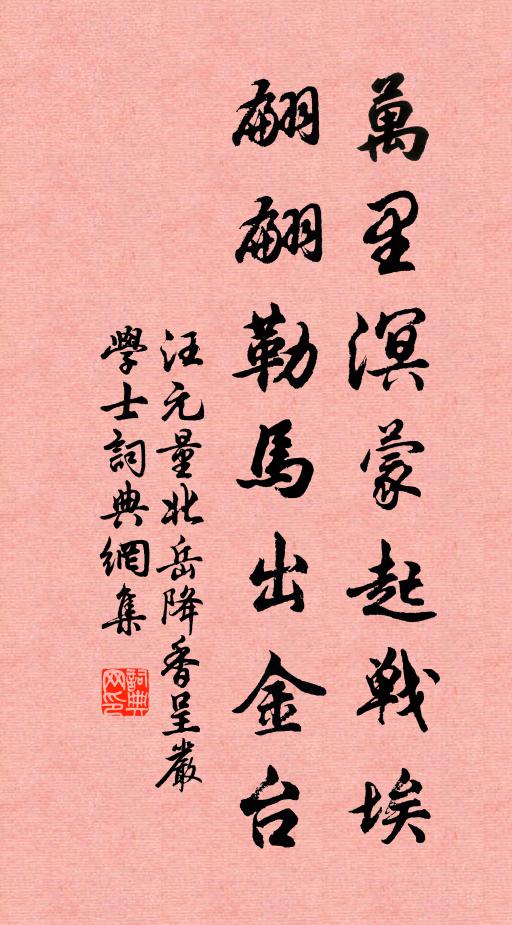 萬里溟蒙起戰埃
翩翩勒馬出金台
汪元量北岳降香呈嚴
學士詞典網集
詞典网印